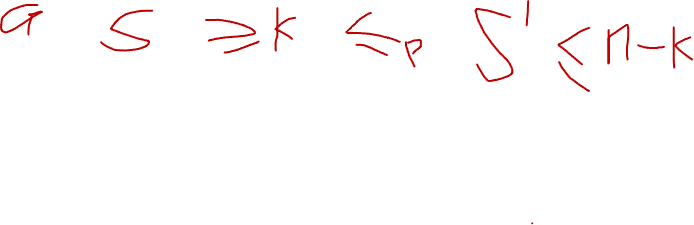 G S ≥k ≤p S' ≤ n-k